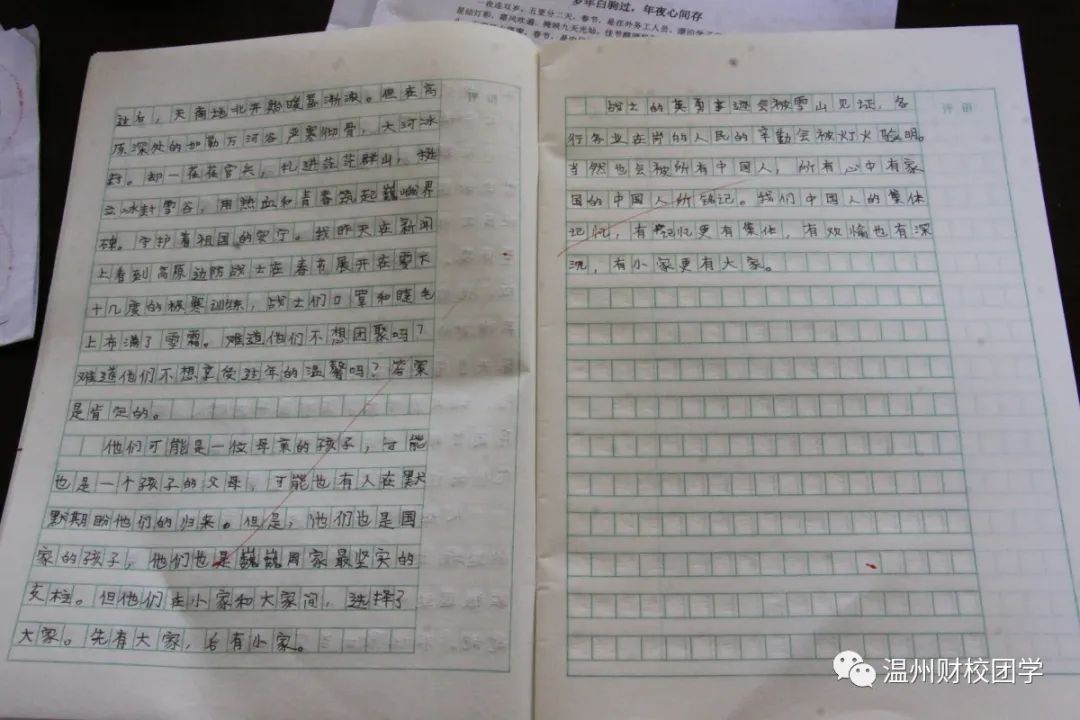 岁年白驹过，年夜心间存
一夜连双岁，五更分二天，春节，是在外务工人员，漂泊学子
过后，天南地北开始暖暮渐浓。但在高
原深处的加勒万河谷严寒彻骨，大河冰
封。却一茬茬官兵，扎进茫茫群山，挺
立冰封雪谷，用热血和青春筑起巍峨界
碑。守护着祖国的安宁。我昨天在新闻
上看到高原边防战士在春节展开在零下
十几度的极寒训练，战士们口罩和睫毛
上布满了雪霜。难道他们不想团聚吗？
难道他们不想享受过年的温馨吗？答案
是肯定的。
他们可能是一位母亲的孩子，可能
也是一个孩子的父母，可能也有人在默
默期盼他们的归来。但是，他们也是国
家的孩子，他们也是巍巍国家最坚实的
支柱。但他们在小家和大家间，选择了
大家。先有大家，后有小家。
评语
战士的英勇事迹会被雪山见证，各
行各业在岗的人民的辛勤会被灯火验明。
当然也会被所有中国人，所有心中有家
国的中国人所铭记。我们中国人的集体
记忆，有记忆更有集体，有欢愉也有深
沉，有小家更有大家。
温州财校团学